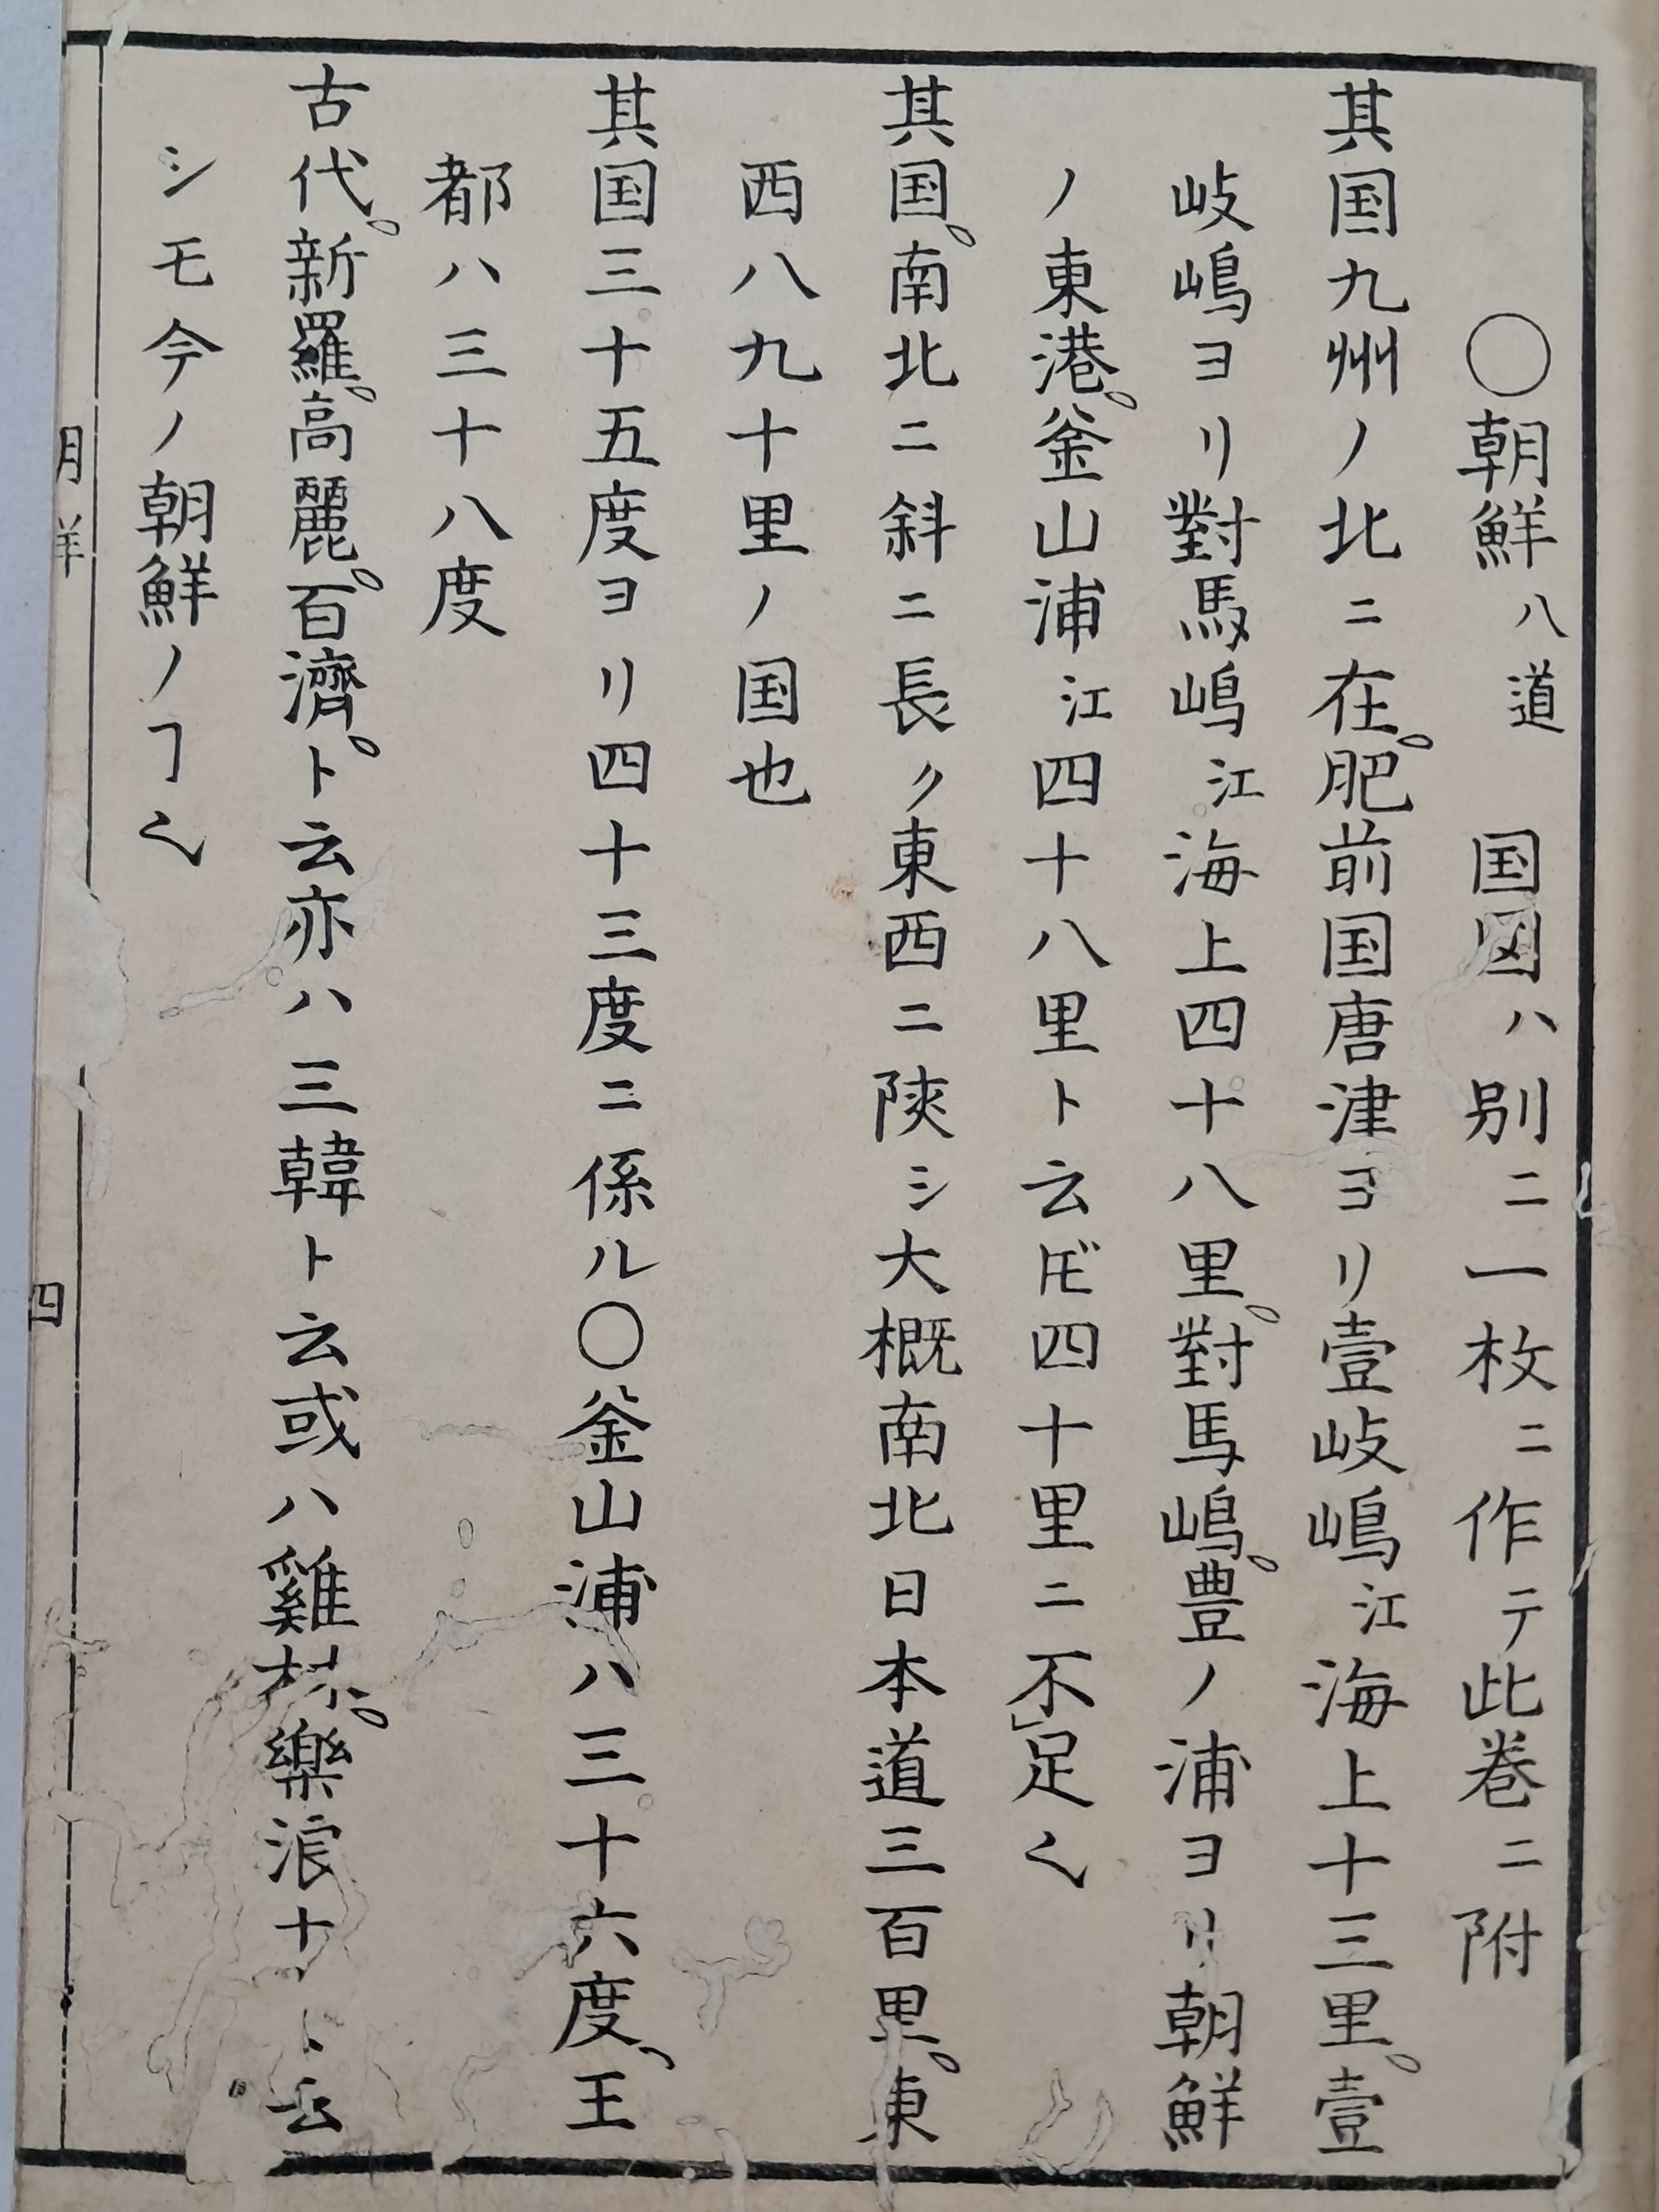 〇朝鮮八道 国図ハ別ニ一枚ニ作テ此巻ニ附
其国九州ノ北ニ在。肥前国唐津ヨリ壹岐嶋江海上十三里。壹
岐嶋ヨリ對馬嶋江海上四十八里。對馬嶋。豊ノ浦ヨリ朝鮮
ノ東港。釜山浦江四十八里ト云𪜈四十里ニ不足く
其国。南北ニ斜ニ長ク東西ニ陜シ大概南北日本道三百里。東
西八九十里ノ国也
其国三十五度ヨリ四十三度ニ係ル〇釜山浦ハ三十六度、王
都ハ三十八度
古代。新羅。高麗。百濟。ト云亦ハ三韓ト云或ハ雞林。樂浪ナト云
シモ今ノ朝鮮ノヿく
四